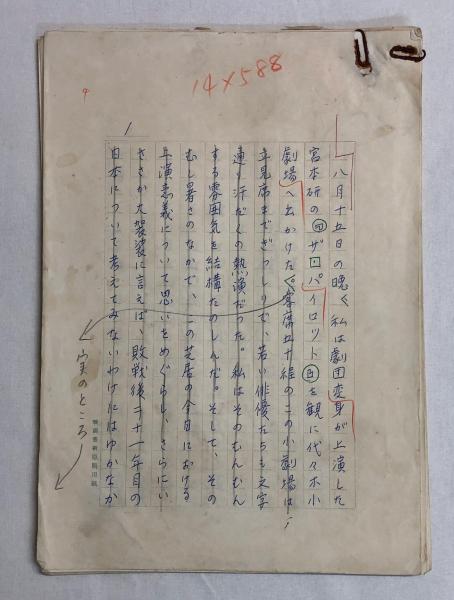 14×588
八月十五日の晩、私は劇団変身が上演した
宮本研の「ザ・パイロット」を観に代々木小
劇場へ出かけた。客席五十程のこの小劇場は
立見席までぎっしりで、若い俳優たちも文字
通り汗だくの熱演だった。私はそのむんむん
する雰囲気を結構たのしんだ。そして、その
むし暑さのなかで、この芝居の今日における
上演意義について思いをめぐらし、さらにい
ささか大袈裟に言えば、敗戦後二十一年目の
日本について考えてみないわけにはゆかなか
実のところ